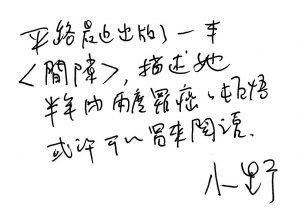 平路最近出版了一本
<間隙>,描述她
半年內兩度罹癌、頓悟
或許可以買來閱讀.
小野